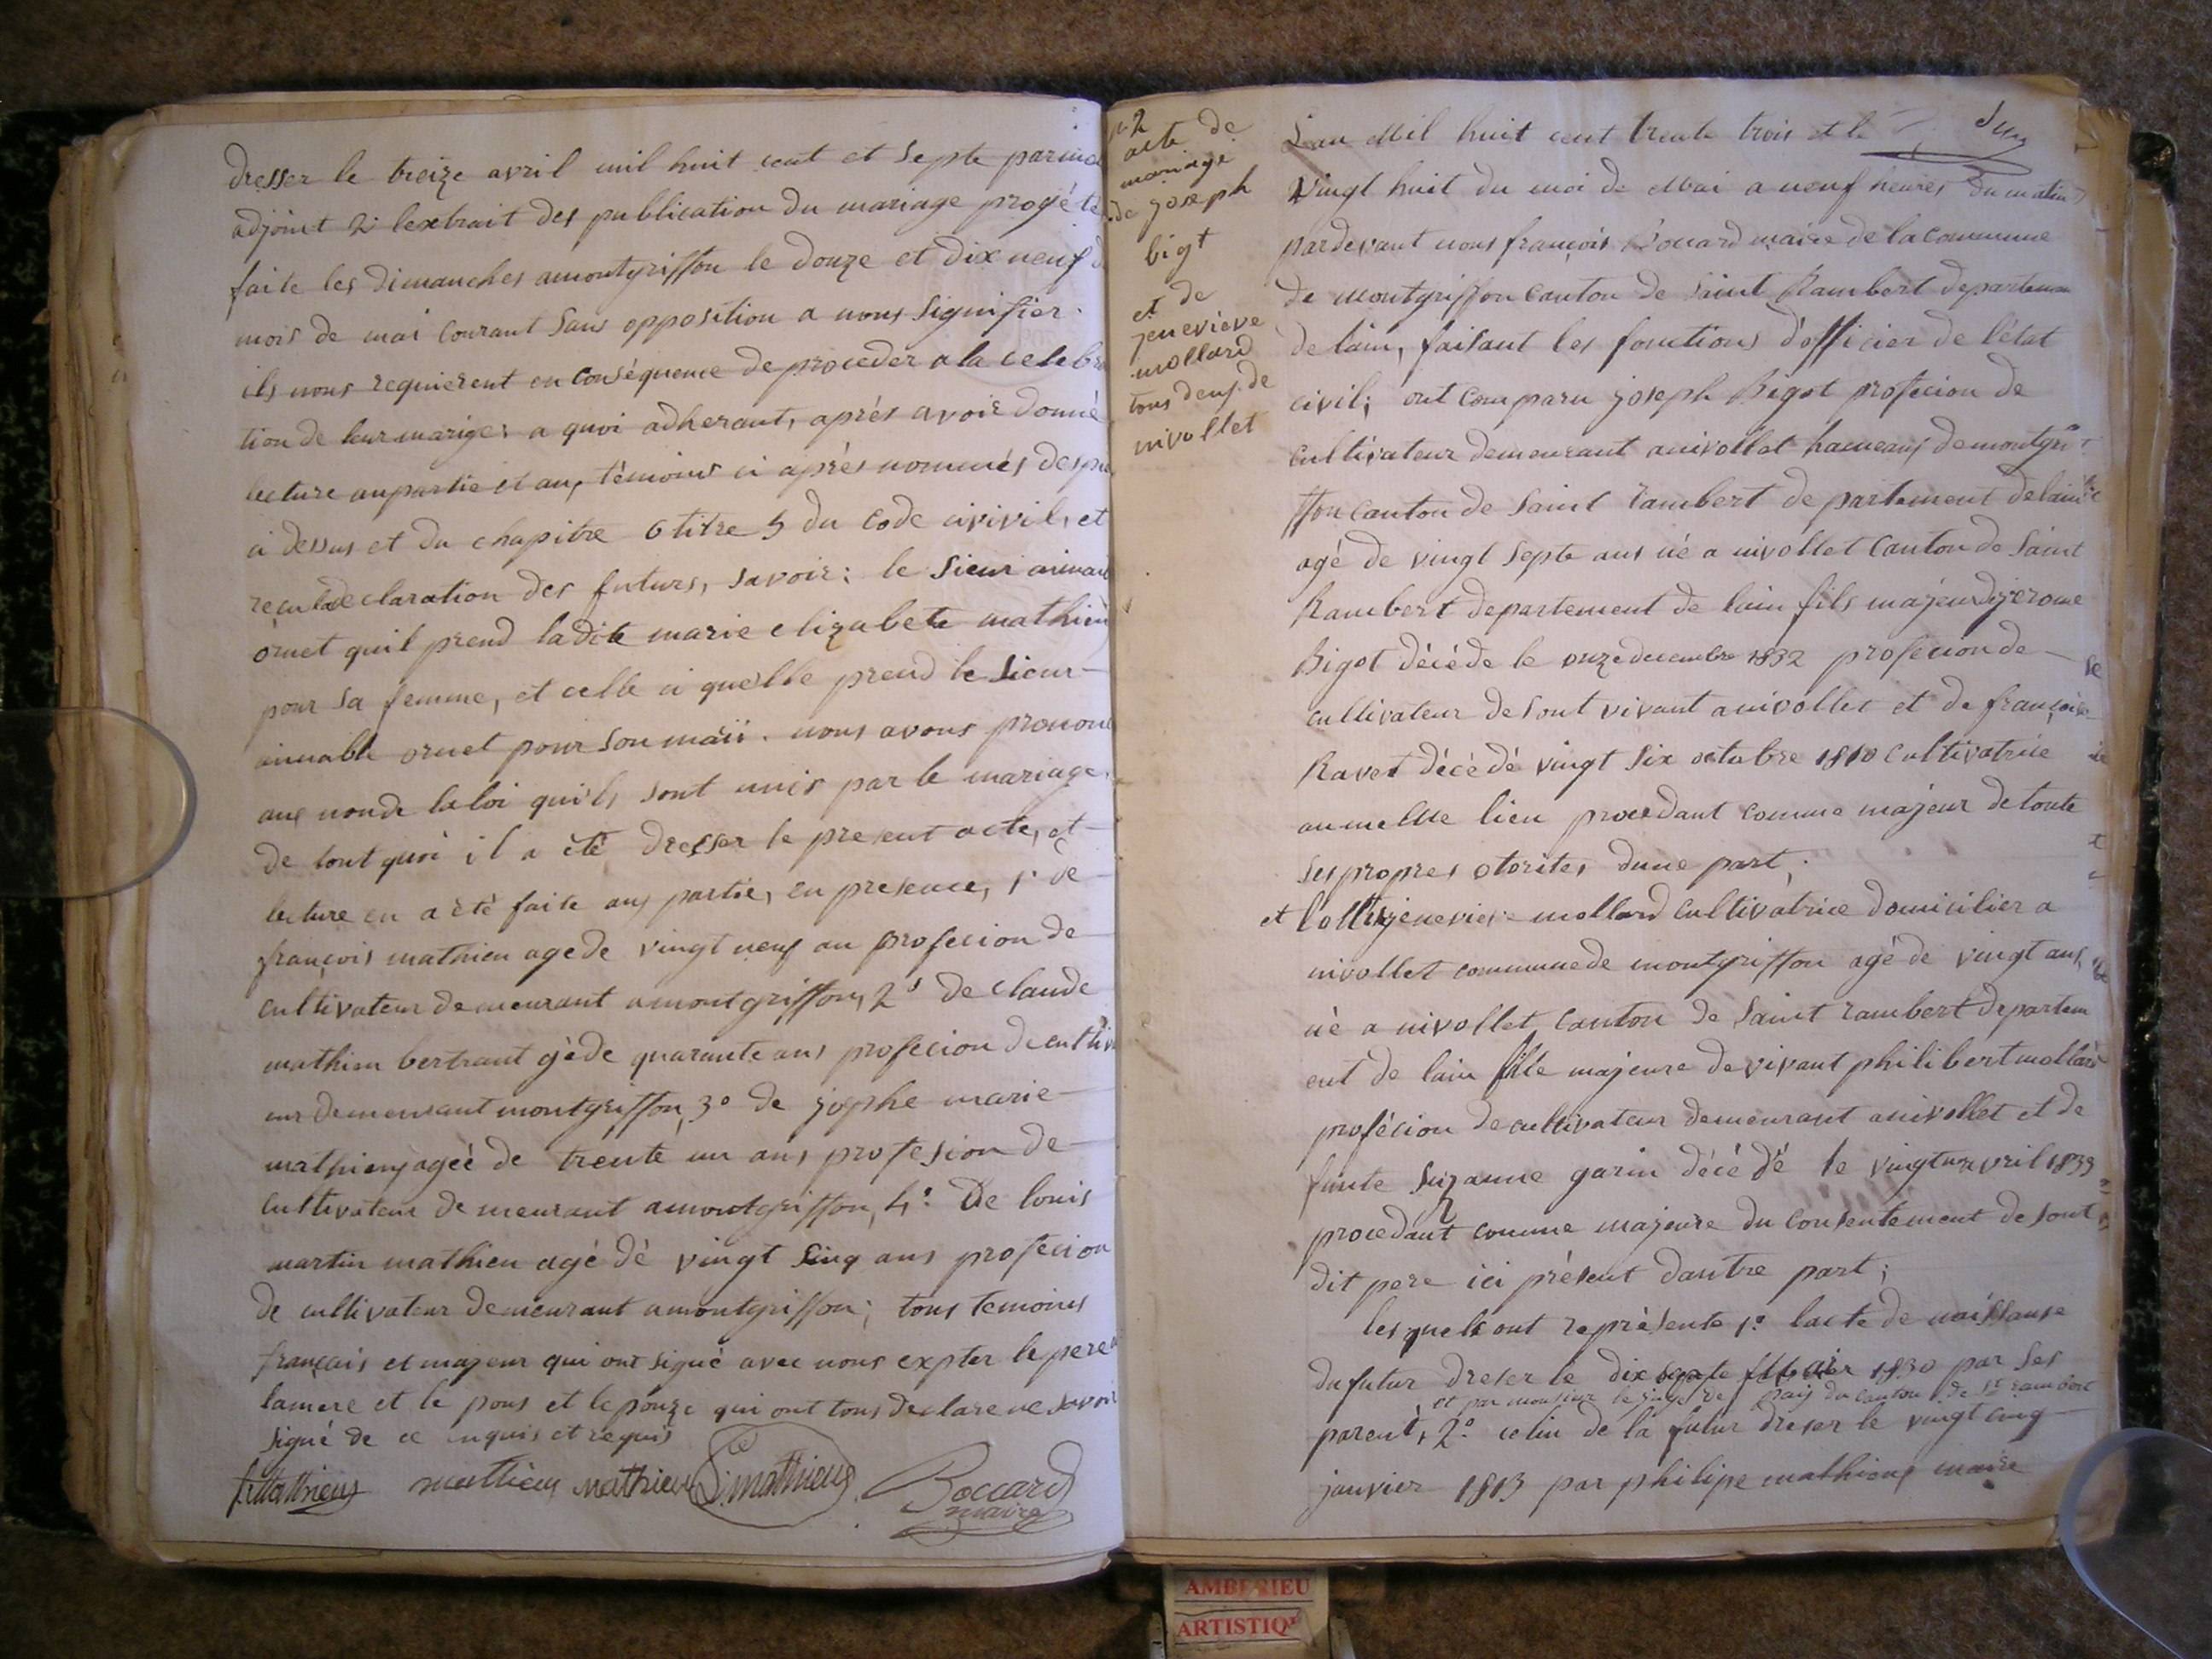 dresser le treize avril mil huit cent et septe par
adjoint 2 lextrait des publication du mariage
faite les dimanches amontgriffon le douze et dix neuf
mois de mai courant sans opposition a nous signifier.
ils nous requierent en conséquence de proceder a la celebra
tion de leur marige: a quoi adherant, après avoir donné
lecture aupartie et aux témoins ci après nommés des
ci dessus et du chapitre 6 titre 5 du code civivil, et
reçu la declaration des futurs, savoir: le sieur
ornet quil prend ladite marie elizabete mathieu
pour sa femme, et celle ci quelle prend le sieur
aimable ornet pour son marii. nous avons prononc
aux nonde la loi quils sont unis par le mariage.
de tout quoi il a été dresser le present acte, et
lecture en a été faite aux partie, en presence, 1° de
françois mathieu agede vingt neuf an profecion de
cultivateur demeurant amontgriffon, 2° de claude
mathieu bertrant gède quarante ans profecion de cultiv
eur demeurant montgriffon, 3° de josphe marie
mathieux ageé de trente un ans profesion de
cultivateur demeurant amontgriffon, 4° de louis
martin mathieu agé dé vingt sinq ans profecion
de cultivateur demeurant amontgriffon; tous temoins
français et majeur qui ont signé avec nous expter le pere
lamere et le pous et lepouze qui ont tous declare ne savoir
signé de ce enquis et requis
f. Matthieux mathieux mathieux L. mathieux Boccard
maire
n. 2
acte de
mariage
de joseph
bigt
et de
jenevieve
mollard
tous deux de
nivollet
Lan Mil huit cent trente trois et le
vingt huit du moi de Mai a neuf heures du matin
pardevant nous françois maire de la commune
de montgriffon canton de saint Rambert departemen
de lain, faisant les fonctions d'officier de l'état
civil; ont comparu joseph Bigot profecion de
cultivateur demeurant anivollet hameaux de montgri
ffon canton de saint rambert departement de lain
agé de vingt septe ans né a nivollet canton de saint
Rambert departement de lain fils majeur dejerome
Bigot décéde le onze decembre 1832 profecion de
cultivateur de sont vivant anivollet et de françoise
Ravet décédé vingt six octobre 1810 cultivatrice
aumelle lieu procedant comme majeur de toute
ses propres otorites dune part;
et jenevieve mollard cultivatrice domicilier a
nivollet commune de montgriffon agé de vingt ans
né a nivollet canton de saint rambert departem
ent de lain fille majeure de vivant philibert mollard
profécion de cultivateur demeurant anivollet et de
funte suzanne garin décédé le avril 1833
procedant comme majeure du consentement de sont
dit pere ici présent dautre part;
les quels ont représente 1° lacte de naissanse
du futur dreser le dix septe 1830 par ses
et par monsieur le juge de paix du canton de st rambert
parent, 2° celui de la futur dreser le vingt cinq
janvier 1813 par philipe mathieux maire
AMBERIEU
ARTISTIQU